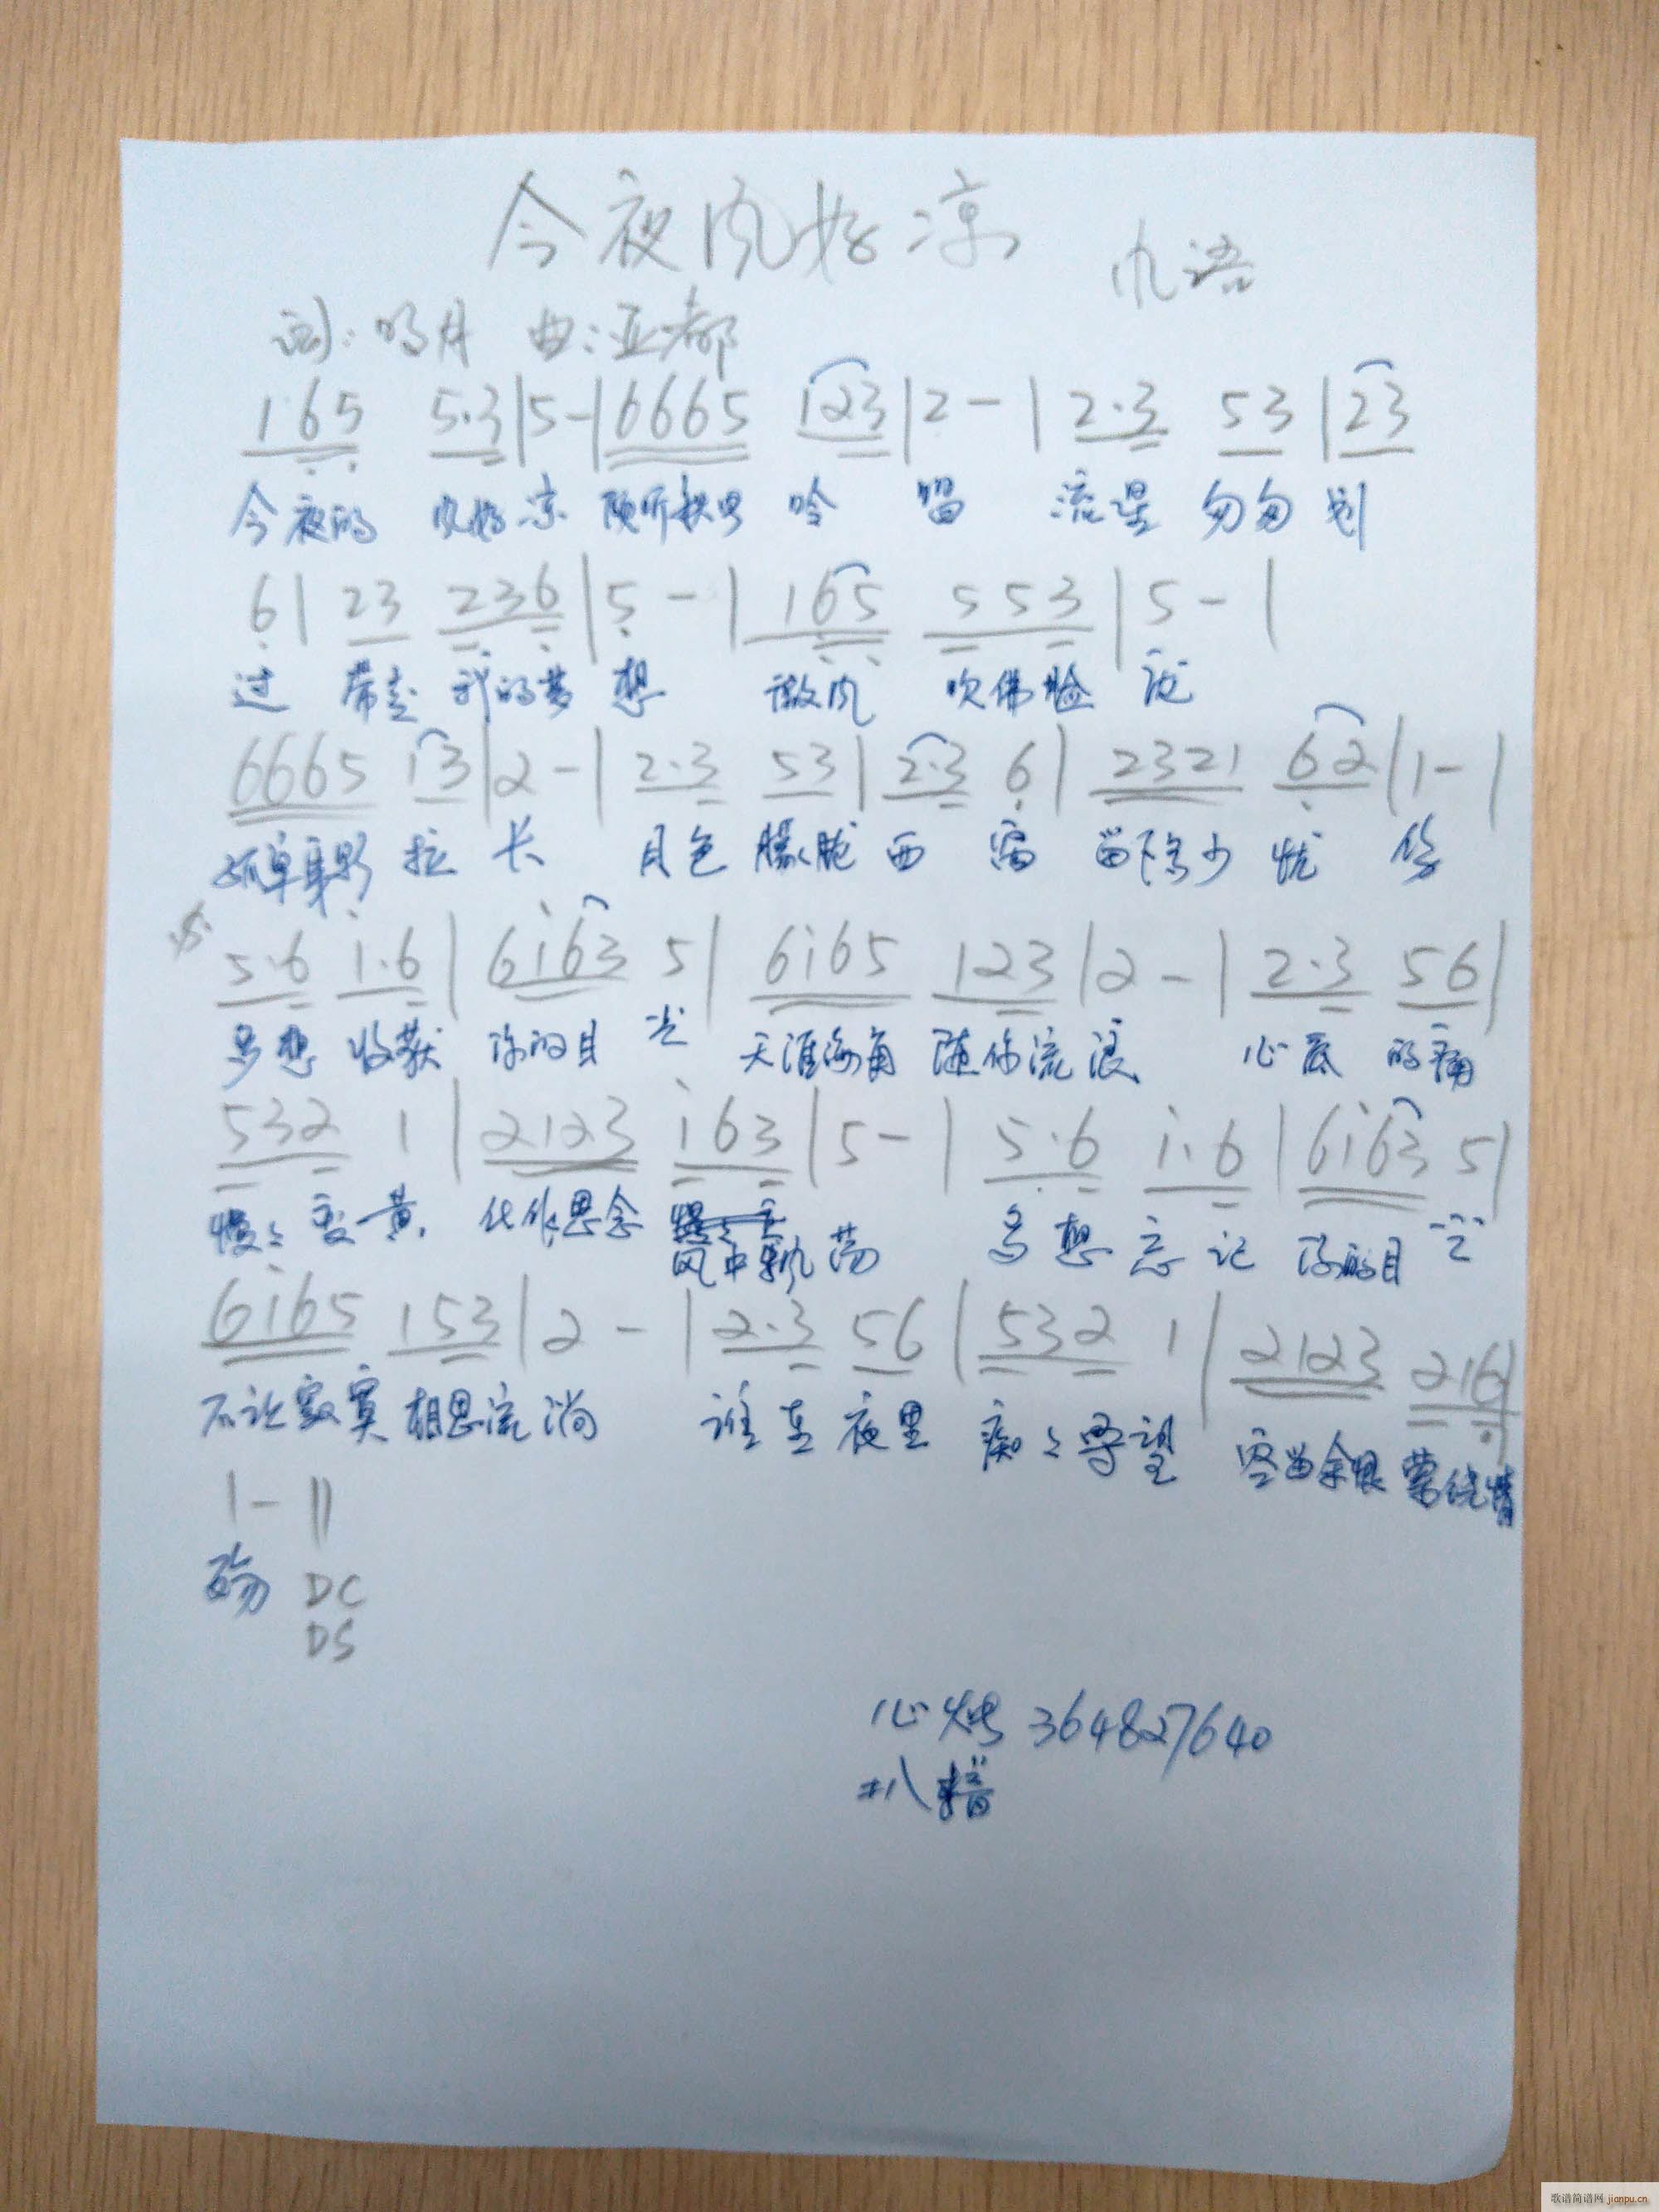 今夜风好凉 九语
词:明月 曲:亚都
1 6 5 5·3|5-|6665 123|2-|2·3 53|23
今夜的 风好凉 倾听秋思 吟唱 流星匆匆划
6|23 236|5-|165 553|5-|
过 带走我的梦想 微风 吹拂脸庞
6665 13|2-|2·3 53|2·3 6|2321 62|1-|
孤单身影 拉长 月色朦胧西窗 留下多少忧伤
5·6 i·6|6i63 5|6i65 123|2-|2·3 56|
多想 收藏 你的目光 天涯海角 随你流浪 心底 的痛
532 1|2123 i63|5-|5·6 i·6|6i63 5|
慢慢变黄 化作思念 风中飘荡 多想忘记 你的目光
6i65 153|2-|2·3 56|532 1|2123 216|
不让寂寞 相思流淌 谁在夜里 痴痴守望 空留余恨 萦绕情
1-||
殇 DC
DS
心烤 364827640
扒谱
歌谱简谱网 jianpu.cn